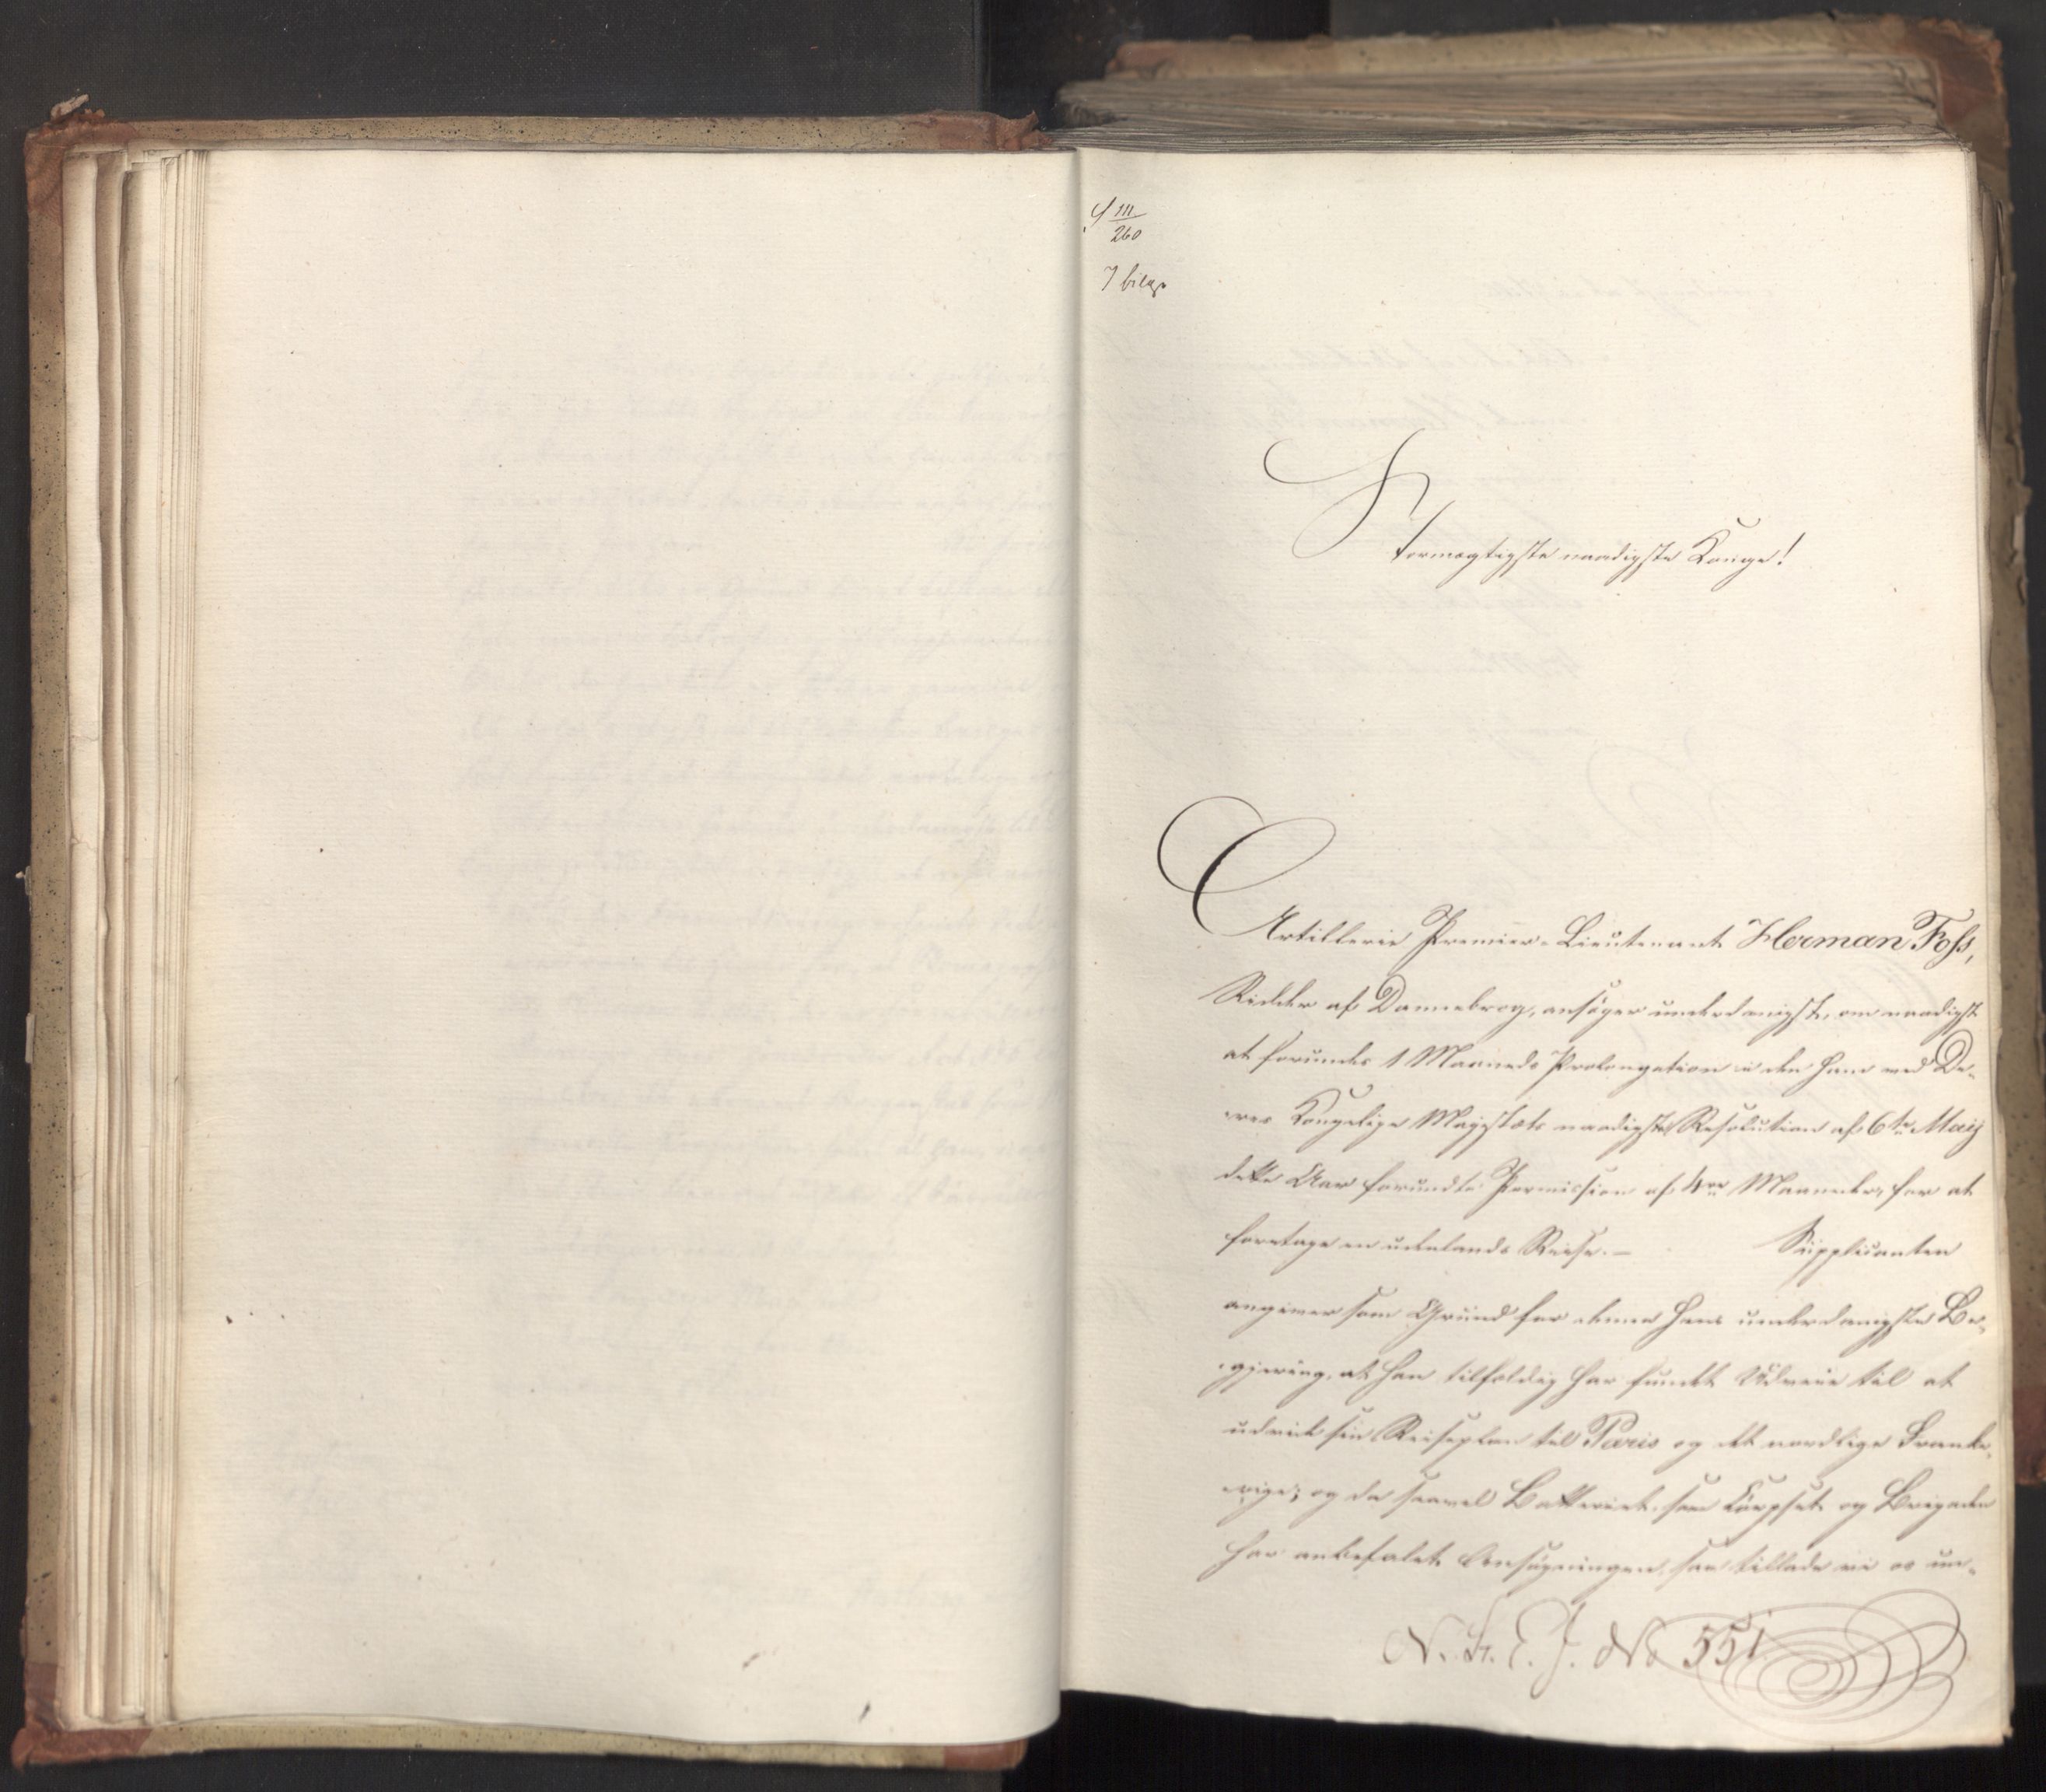 111
260
7 bilag
Stormægtigste naadigste Konge!
Artillerie Premier-Lieutenant Herman Foss,
Ridder af Dannebrog, ansøger underdanigst, om naadigst
at forundes 1 Maaneds Prolongation i den ham ved De-
res Kongelige Majestæts naadigste Resolution af 6te Maij
dette Aar forundte Permission af 4re Maaneder, for at
foretage en udenlands Reise.— Supplicanten
angiver som Grund for denne hans underdanigste Be-
gjering, at han tilfældig har fundet Udveie til at
udvide sin Reiseplan til Paris og det nordlige Frank-
rige; og da saavel Batteriet, som Corpset og Brigaden
har anbefalet Ansøgningen, saa tillade vi os un-
No 551